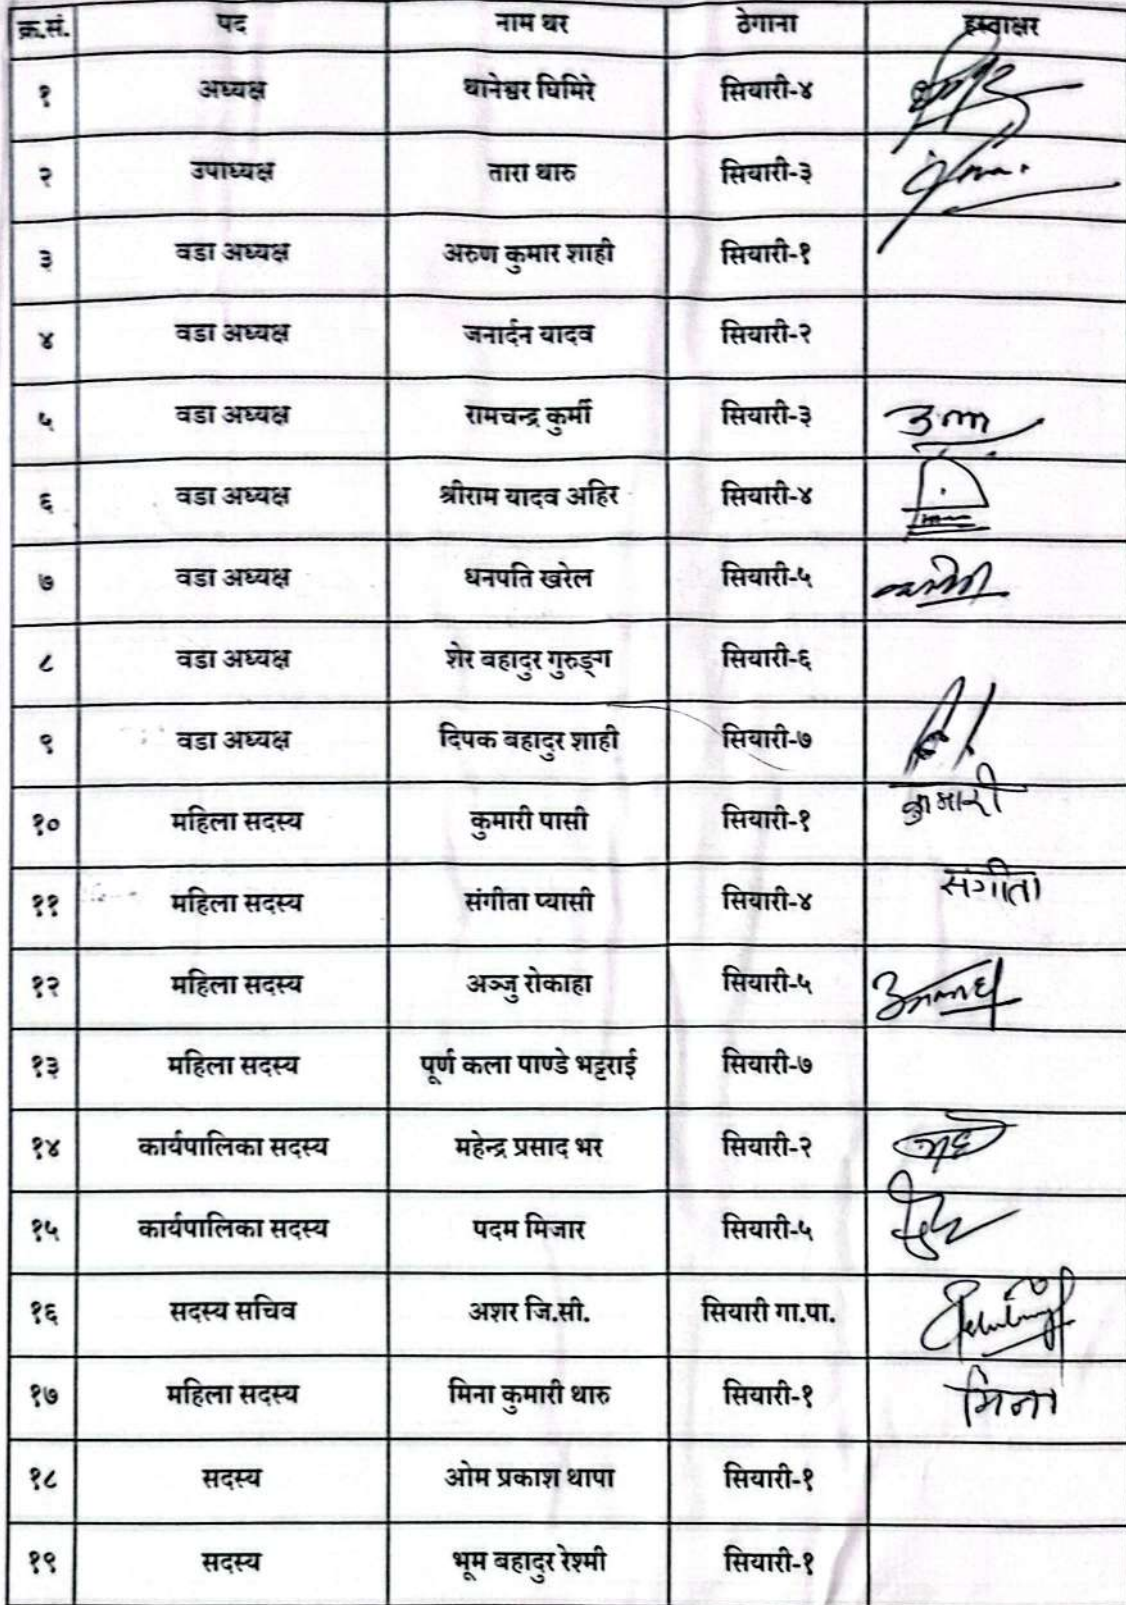 क्र.सं. पद नाम थर ठेगाना हस्ताक्षर
१ अध्यक्ष थानेश्वर घिमिरे सियारी-४
२ उपाध्यक्ष तारा थारु सियारी-३
३ वडा अध्यक्ष अरुण कुमार शाही सियारी-१
४ वडा अध्यक्ष जनार्दन यादव सियारी-२
५ वडा अध्यक्ष रामचन्द्र कुर्मी सियारी-३
६ वडा अध्यक्ष श्रीराम यादव अहिर सियारी-४
७ वडा अध्यक्ष धनपति खरेल सियारी-५
८ वडा अध्यक्ष शेर बहादुर गुरुङ्ग सियारी-६
९ वडा अध्यक्ष दिपक बहादुर शाही सियारी-७
१० महिला सदस्य कुमारी पासी सियारी-१ कुमारी
११ महिला सदस्य संगीता प्यासी सियारी-४ संगीता
१२ महिला सदस्य अञ्जु रोकाहा सियारी-५
१३ महिला सदस्य पूर्ण कला पाण्डे भट्टराई सियारी-७
१४ कार्यपालिका सदस्य महेन्द्र प्रसाद भर सियारी-२
१५ कार्यपालिका सदस्य पदम मिजार सियारी-५
१६ सदस्य सचिव अशर जि.सी. सियारी गा.पा.
१७ महिला सदस्य मिना कुमारी थारु सियारी-१ मिना
१८ सदस्य ओम प्रकाश थापा सियारी-१
१९ सदस्य भूम बहादुर रेश्मी सियारी-१